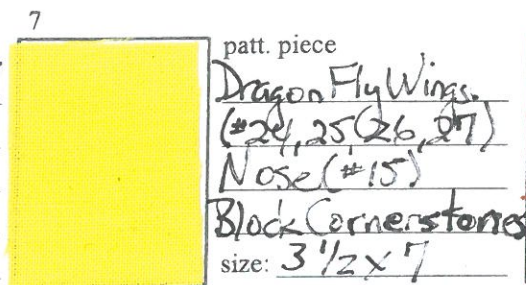 7
patt. piece
Dragon Fly Wings.
(#24, 25(26, 27)
Nose (#15)
Block Cornerstones
size: 3 1/2 x 7